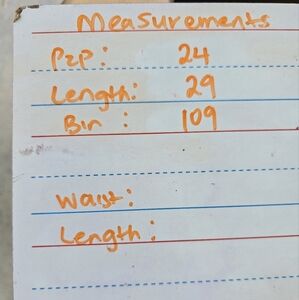 Measurements
P2P: 24
Length: 29
Bin : 109
Waist:
Length: